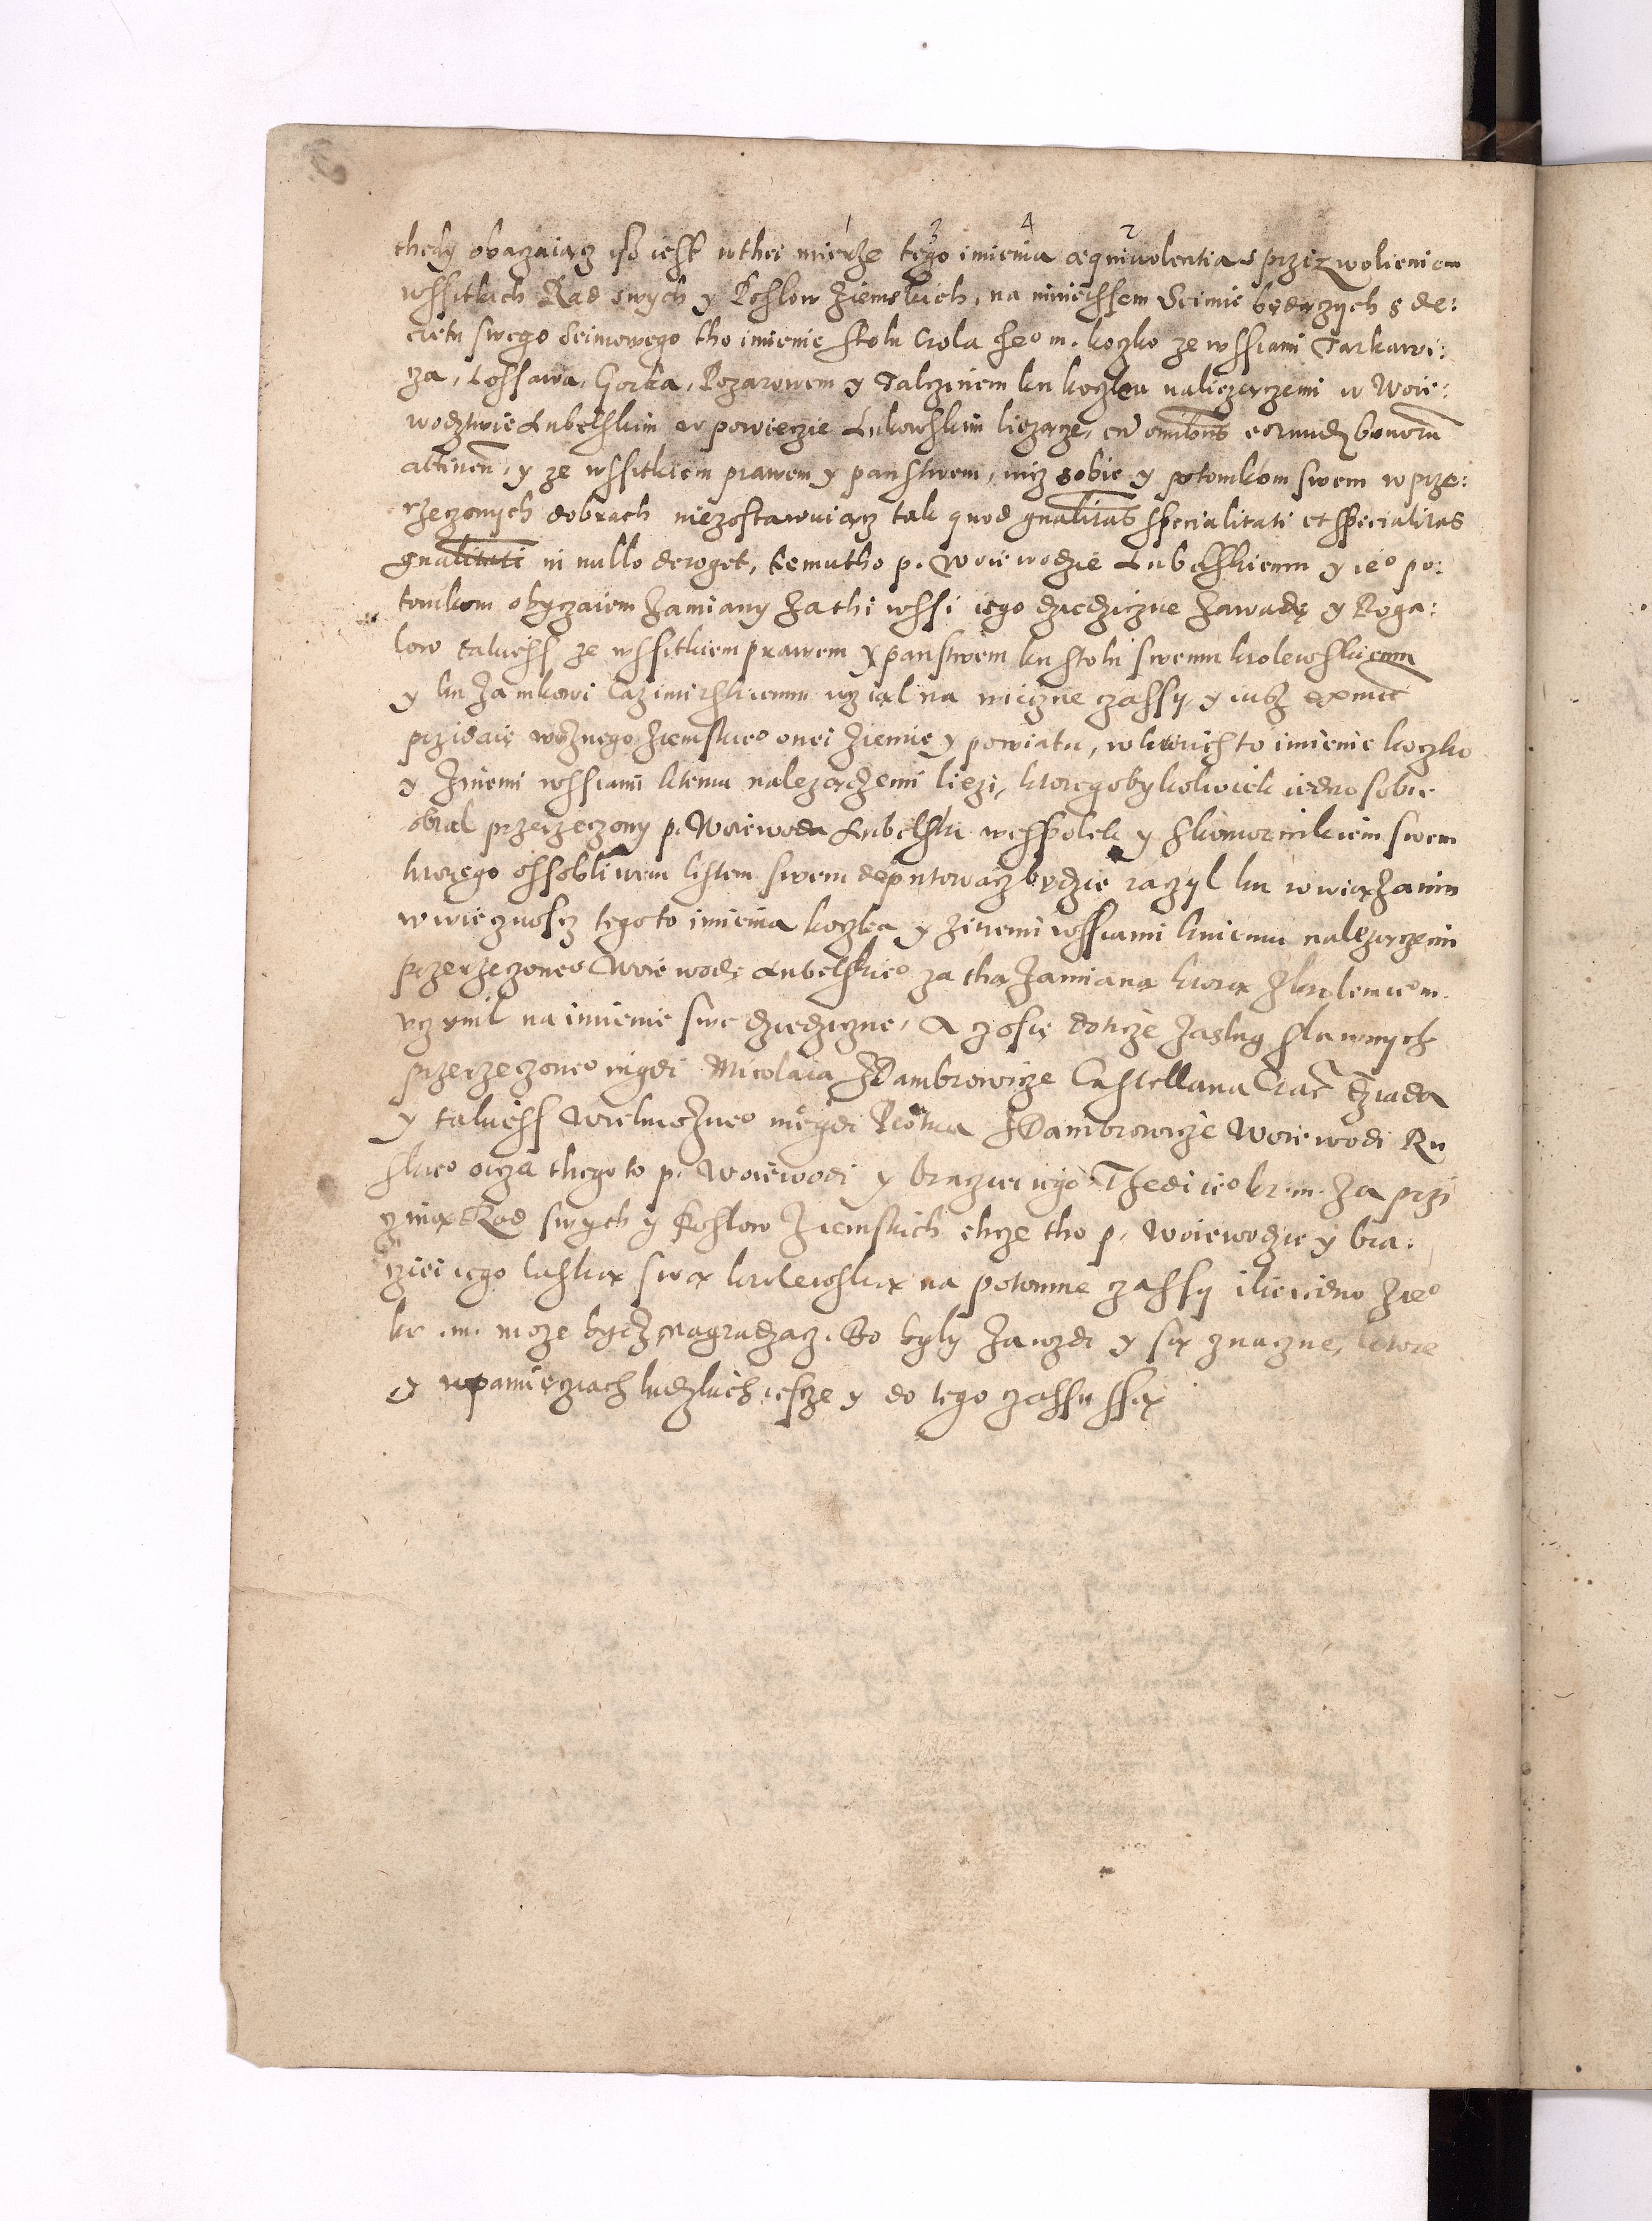 1 3 4 2
thedy obaczaiącz isz iest wthei mierze tego imienia æquivolentia s przizwolieniem
wssitkich Rad swych y Poslow ziemskich, na niniessem Seimie będączych s de:
cretu swego Seimowego tho imienie stolu Crola Jeo m. koczko ze wssiami Tarkawi:
cza, Lossawa, Gorka, Pozarowem y Talczinem ku koczku nalieżączemi w Woie:
wodztwie Lubelskim w powieczie Lukowskim liezącze, cū omībus eorundē bonorū
attinen, y ze wssitkiem prawem y panstwem, nicz sobie y potomkom swem w prze:
rzeczonych dobrach niezostawuiącz tak quod gnalitas specialitati et specialitas
gnalitati in nullo deroget, temutho p. Woiewodzie Lubelskiemu y ieo po:
tomkom obyczaiem zamiany za thi wssi iego dziedziczne Zawadę y Roga:
low takiess ze wssitkiem prawem y panstwem ku stolu swemu krolewskiemu
y ku zamkowi Cazimirskiemu wzial na wieczne czassy, y iusz ex nuc
przidaie woznego ziemskieo onei ziemie y powiatu, w ktorich to imienie koczko
y zinemi wssiami ktemu należączemi liezi, ktoregobykolwiek iedno sobie
obral przerzeczony p. Woiewoda Lubelski wespolek y skomornikiem swem
ktorego ossobliwem listem swem deputowacz będzie raczyl ku wwiązaniu
wwiecznoscz tego to imienia koczka y zinemi wssiami kniemu należączemi
przerzeczoneo Woiewodę Lubelskieo za tha zamiana ktorą zkrolem ieo m.
uczynil na imienie swe dziedziczne, A czosie doticze zaslug slawnych
przerzeczoneo nigdi Micolaia zDambrowicze Castellana Crac dziada
y takiess wielmozneo niegdi Piotra zDambrowicze Woiewodi Ru
skieo oicza thego to p. Woiewodi y bracziei iego Thedi ieo kr. m. za przi
czyną Rad swych y Poslow ziemskich chcze tho p. Woiewodzie y bra:
cziei iego laską swą krolewską na potomne czassy ilie iedno zieo
kr. m. moze bydz nagradzacz. Bo byly zawzdi y są znaczne, ktore
y wpamięcziach ludzkich iescze y do tego czassu są